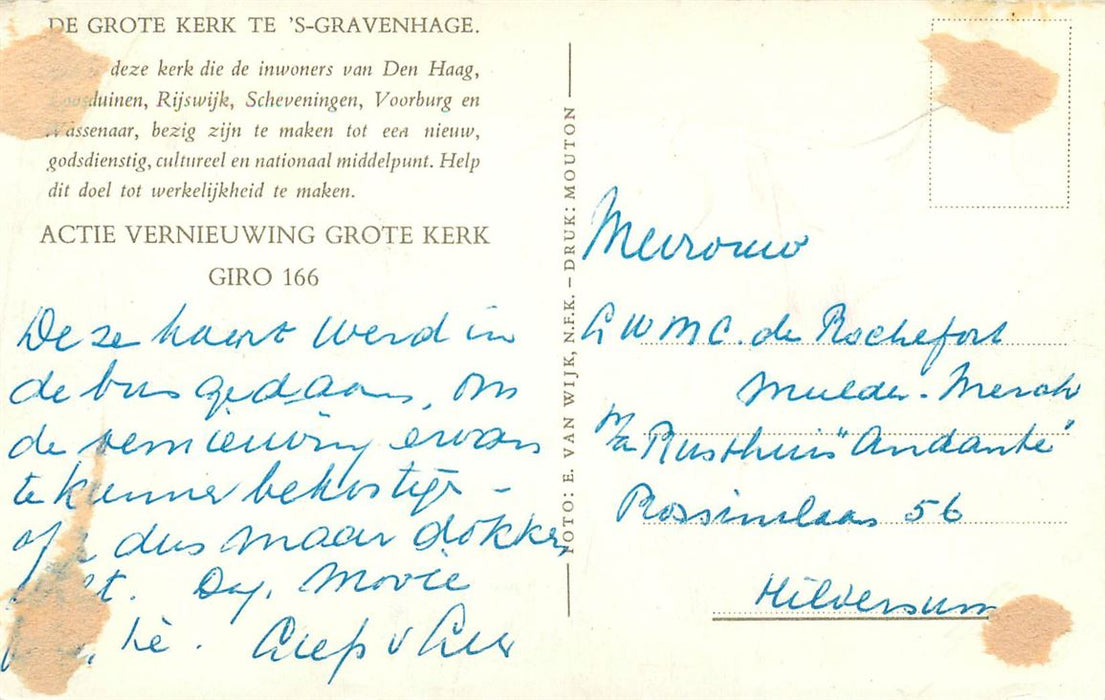 DE GROTE KERK TE 'S-GRAVENHAGE.
deze kerk die de inwoners van Den Haag,
duinen, Rijswijk, Scheveningen, Voorburg en
Wassenaar, bezig zijn te maken tot een nieuw,
godsdienstig, cultureel en nationaal middelpunt. Help
dit doel tot werkelijkheid te maken.
ACTIE VERNIEUWING GROTE KERK
GIRO 166
Deze kaart werd in
de bus gedaan, om
de vernieuwing ervan
te kunnen bekostigen -
of dus maar dokken
Dag,
FOTO: E. VAN WIJK, N.F.K. – DRUK: MOUTON
Mevrouw
G W M C. de Rochefort
Mulder - Merck
p/a Rusthuis "Andante"
Rossinilaan 56
Hilversum